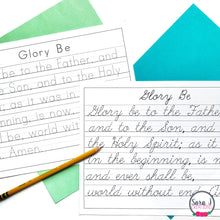 Glory Be
be to the Father, and
the Son, and to the Holy
as it was in
is now,
be, world
Amen.
Glory Be
Glory be to the Fathe
and to the Son, and to
the Holy Spirit; as it
in the beginning, is n
and ever shall be,
world without end. A
Sara J